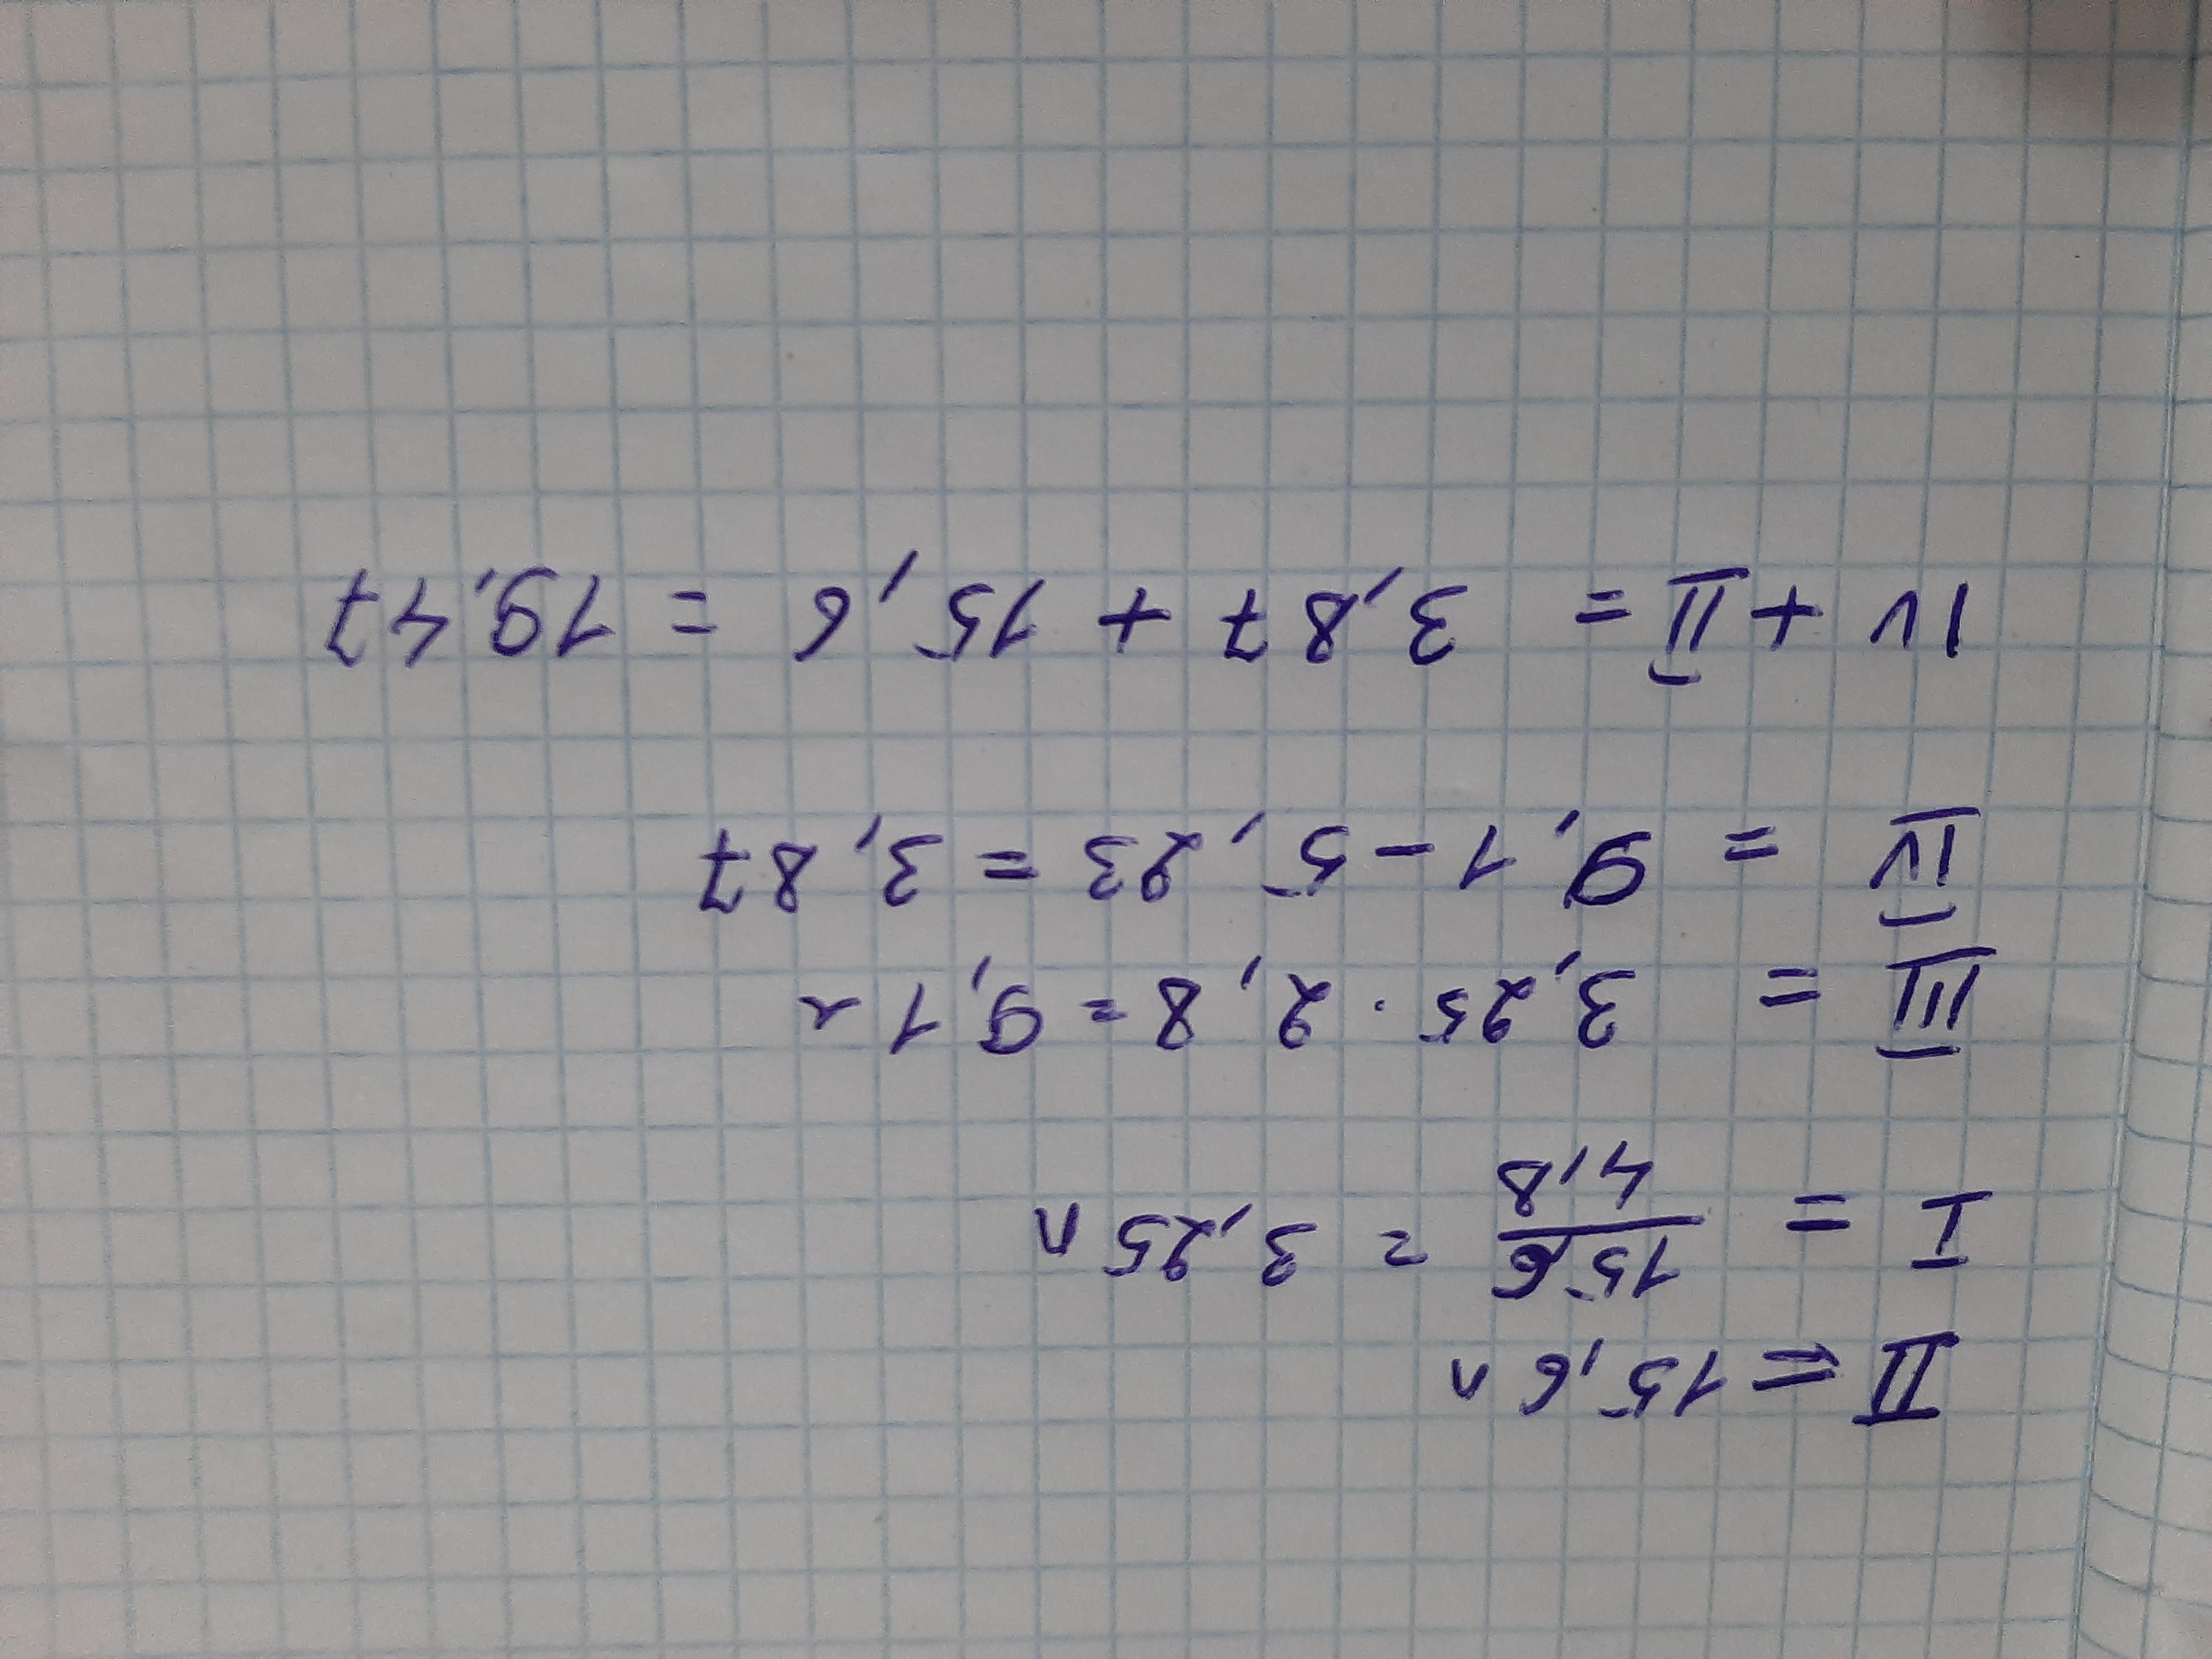 II = 15,6 л
I = 15,6 / 4,8 = 3,25 л
III = 3,25 · 2,8 = 9,1 л
IV = 9,1 - 5,23 = 3,87
IV + II = 3,87 + 15,6 = 19,47